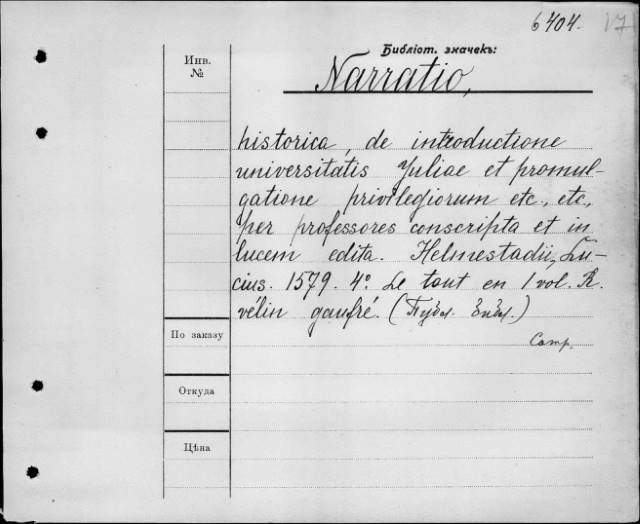 6404. 17
Библіот. значекъ:
Инв.
№
Narratio,
historica, de introductione
universitatis Juliae et promul-
gatione privilegiorum etc., etc.,
per professores conscripta et in
lucem edita. Helmestadii, Lu-
cius. 1579. 4º. Le tout en 1 vol. R.
vélin gaufré. (Публ. Библ.)
По заказу
Comp.
Откуда
Цѣна